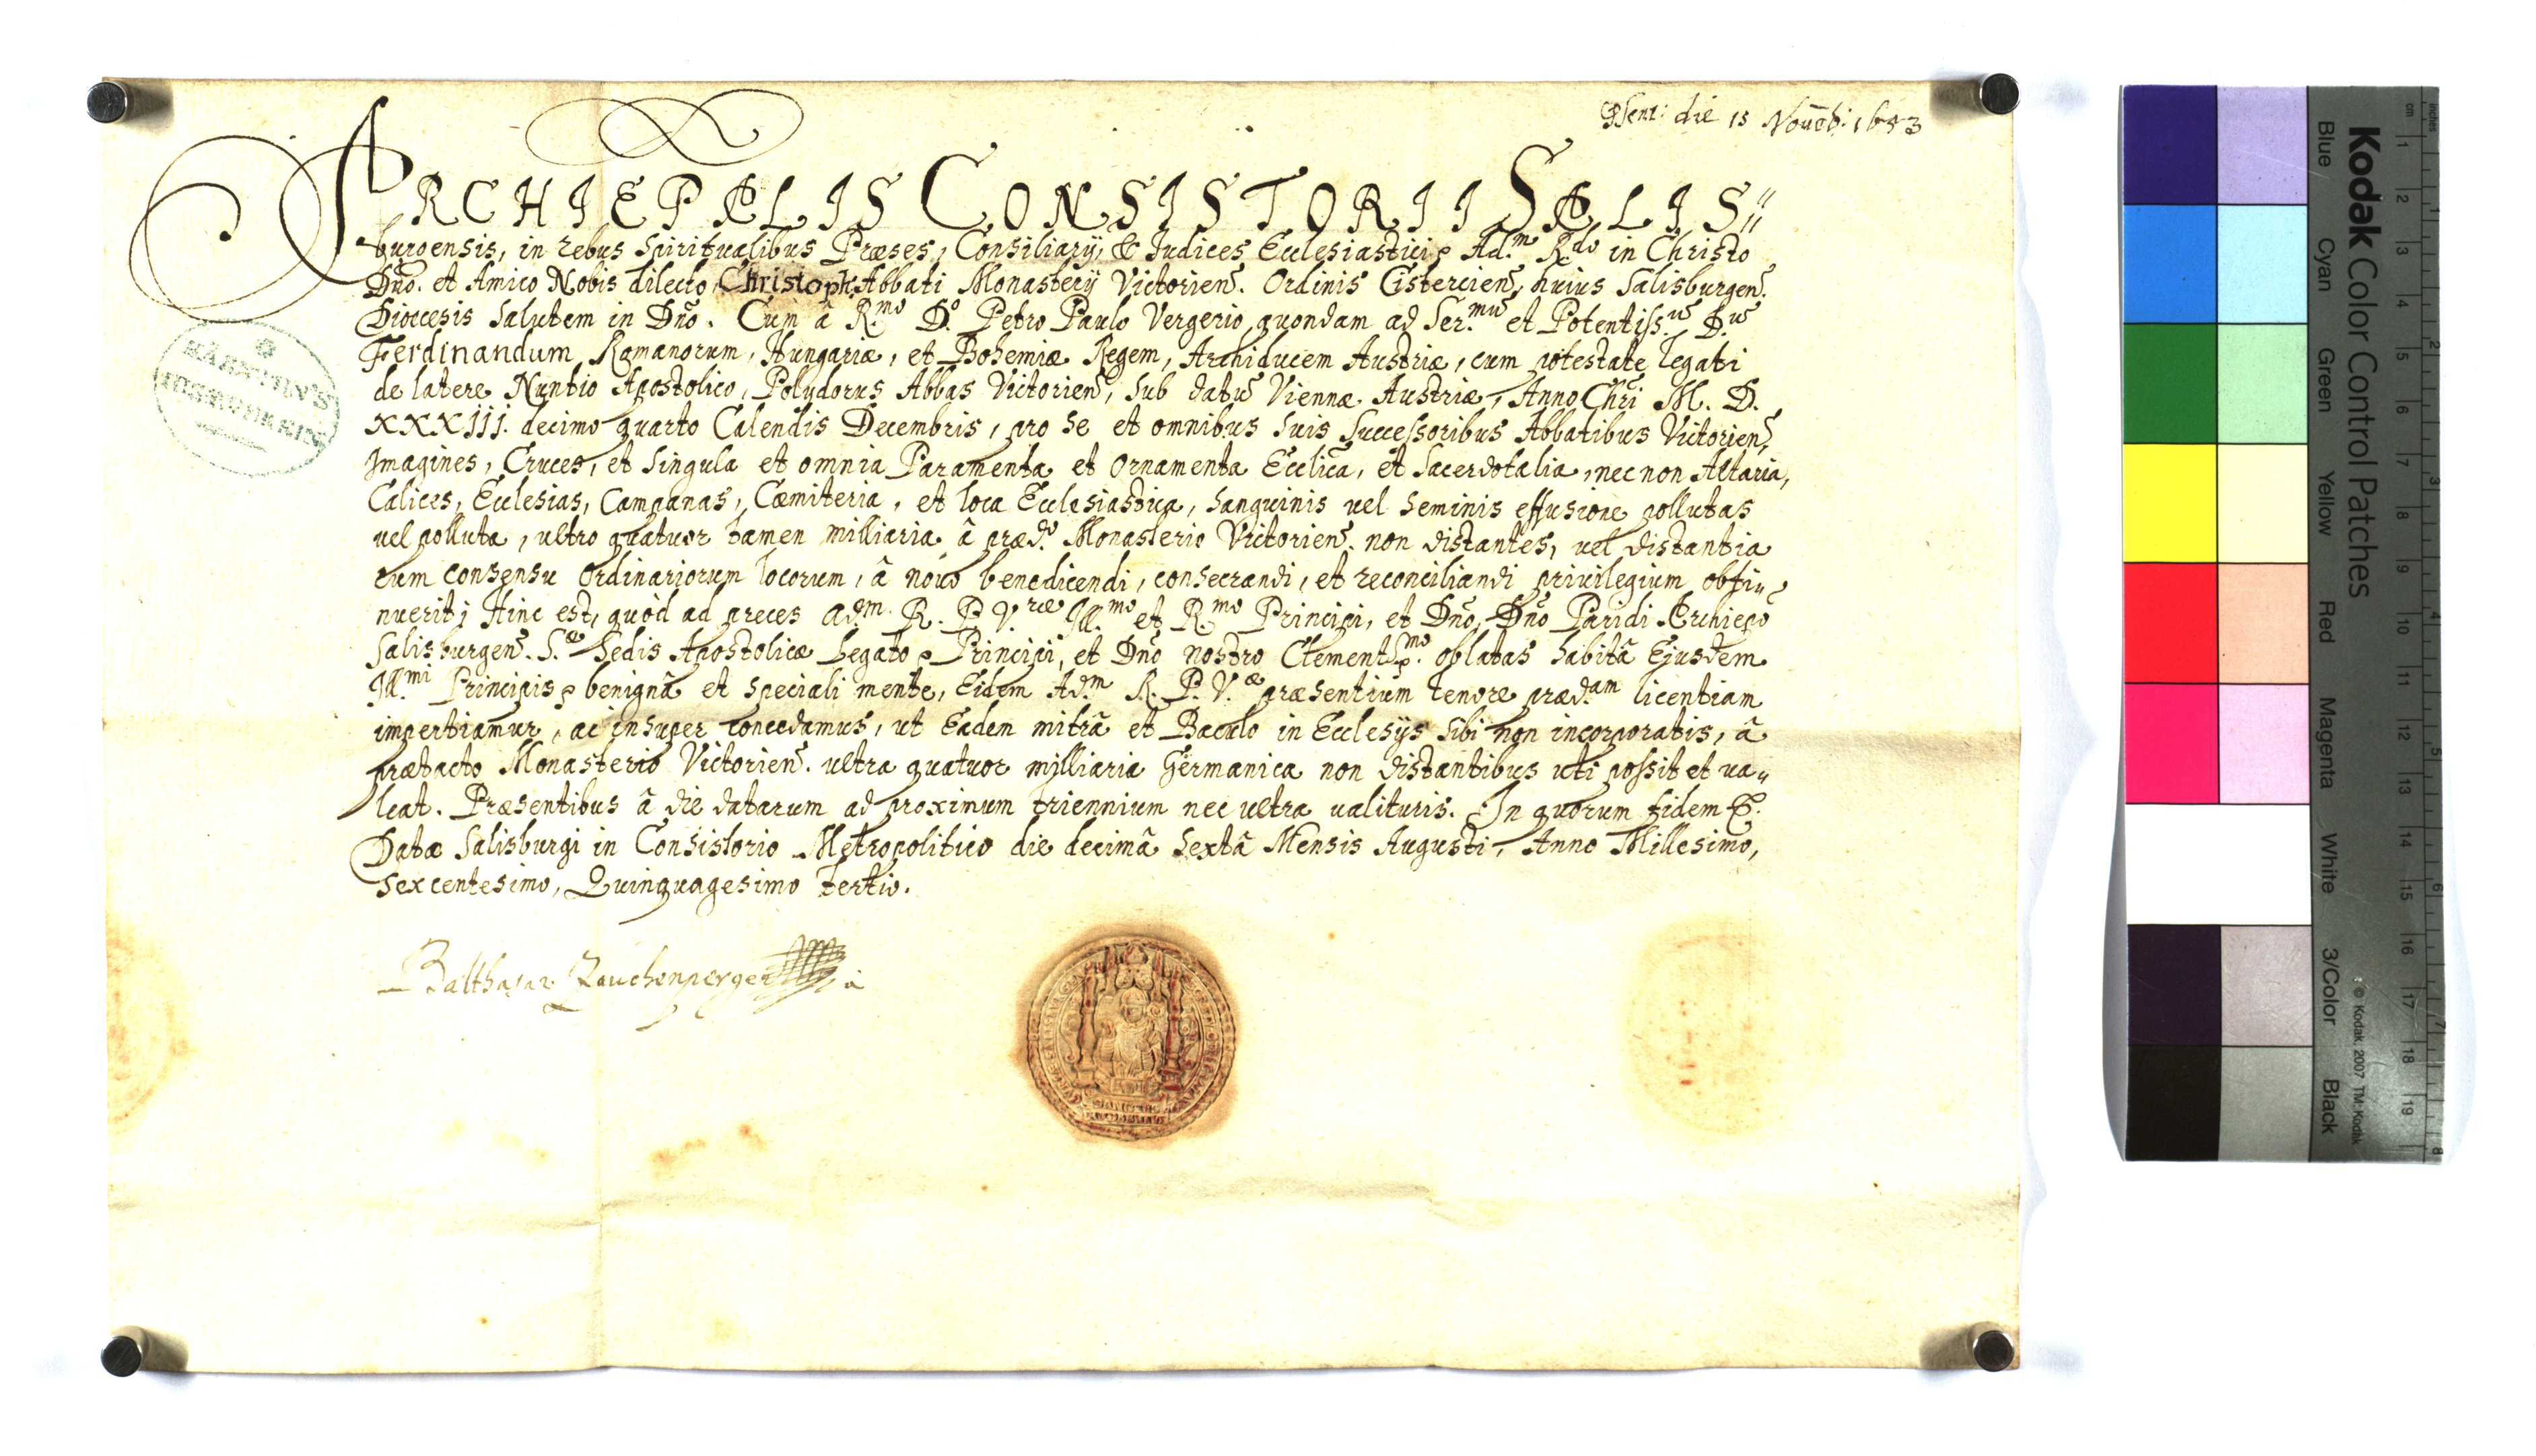 Psent: die 15 Novēb: 1653
ARCHIEPALIS CONSISTORII SALIS⸗
burgensis, in rebus Spiritualibus Præses, Consiliarÿ, & Iudices Ecclesiastici Ad.m R.do in Christo
Dno. et Amico Nobis dilecto Christoph. Abbati Monasterÿ Victorien. Ordinis Cistercien, huius Salisburgen.
Diœcesis Salutem in Dno. Cum â R.mo D.o Petro Paulo Vergerio quondam ad Ser.mū et Potentiss.ū D.ū
Ferdinandum Romanorum, Hungariæ, et Bohemiæ Regem, Archiducem Austriæ, cum potestate legati
de latere Nuntio Apostolico, Polydorus Abbas Victorien, sub datū Viennæ Austriæ, Anno Chri M. D.
XXXIII. decimo quarto Calendis Decembris, pro se et omnibus suis Successoribus Abbatibus Victorien,
Imagines, Cruces, et singula et omnia Paramenta et Ornamenta Ecclica, et Sacerdotalia, nec non Altaria,
Calices, Ecclesias, Campanas, Cæmiteria, et loca Ecclesiastica, sanguinis vel seminis effusione pollutas
vel polluta, ultro quatuor tamen milliaria â præd.o Monasterio Victorien. non distantes, vel distantia
cum consensu Ordinariorum locorum, â novo benedicendi, consecrandi, et reconciliandi privilegium obti⸗
nuerit; Hinc est, quòd ad preces ad.m R. P. V.ræ Ill.mo et R.mo Principi, et Dno, Dno Paridi Archiepo
Salisburgen. S.æ Sedis Apostolicæ Legato Principi, et Dno nostro Clement.mo oblatas habitâ Ejusdem
Ill.mi Principis benignâ et speciali mente, Eidem Ad.m R. P. V.æ præsentium tenore præd.am licentiam
impertiamur, ac insuper concedamus, ut Eadem mitrâ et Baculo in Ecclesÿs sibi non incorporatis, â
prætacto Monasterio Victorien. ultra quatuor milliaria Germanica non distantibus uti possit et va⸗
leat. Præsentibus â die datarum ad proximum triennium nec ultra valituris. In quorum fidem &.
Datæ Salisburgi in Consistorio Metropolitico die decimâ sextâ Mensis Augusti, Anno Millesimo,
Sexcentesimo, Quinquagesimo tertio.
KÄRNTEN'S
GESCH.VEREIN
Balthasar Zauchenperger
Kodak Color Control Patches
Blue Cyan Green Yellow Red Magenta White 3/Color Black
© Kodak, 2007 TM: Kodak
cm 1 2 3 4 5 6 7 8 9 10 11 12 13 14 15 16 17 18 19
inches 1 2 3 4 5 6 7 8